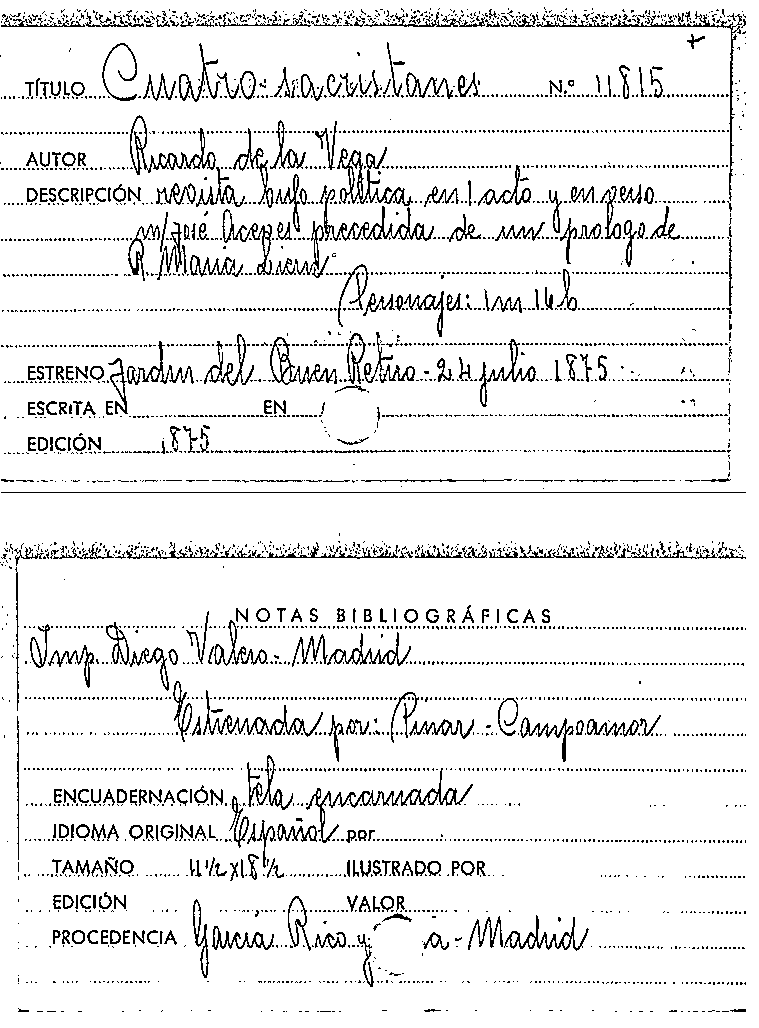 TÍTULO Cuatro sacristanes N.º 11815
AUTOR Ricardo de la Vega
DESCRIPCIÓN revista bufo política en 1 acto y en verso
m/ José Aceves precedida de un prologo de
R Maria Liern
Personajes: 1 m 16 h
ESTRENO Jardin del Buen Retiro - 24 julio 1875
ESCRITA EN EN
EDICIÓN 1875
NOTAS BIBLIOGRÁFICAS
Imp. Diego Valero - Madrid
Estrenada por: Pinar - Campoamor
ENCUADERNACIÓN tela encarnada
IDIOMA ORIGINAL Español por
TAMAÑO 11 1/2 x 18 1/2 ILUSTRADO POR
EDICIÓN VALOR
PROCEDENCIA García Rico y a - Madrid